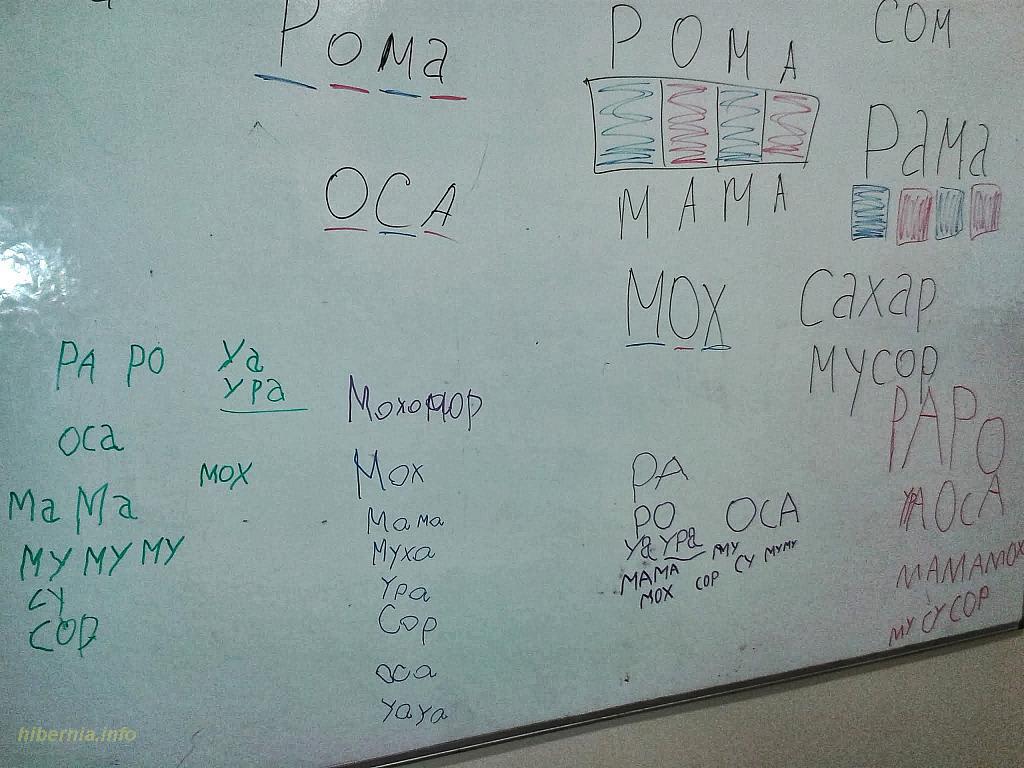 Рома
ОСА
РОМА
МАМА
МОХ
СОМ
Рама
Сахар
мусор
РА РО Уа
ура
оса
мох
Ма Ма
МУ МУ МУ
СУ
СОР
Мох
Мама
Муха
Ура
Сор
оса
уауа
РА
РО ОСА
Уа УРа МУ
МАМА СУ МУМУ
МОХ СОР
РАРО
УАОСА
МАМАМОХ
МУ СУ СОР
hibernia.info